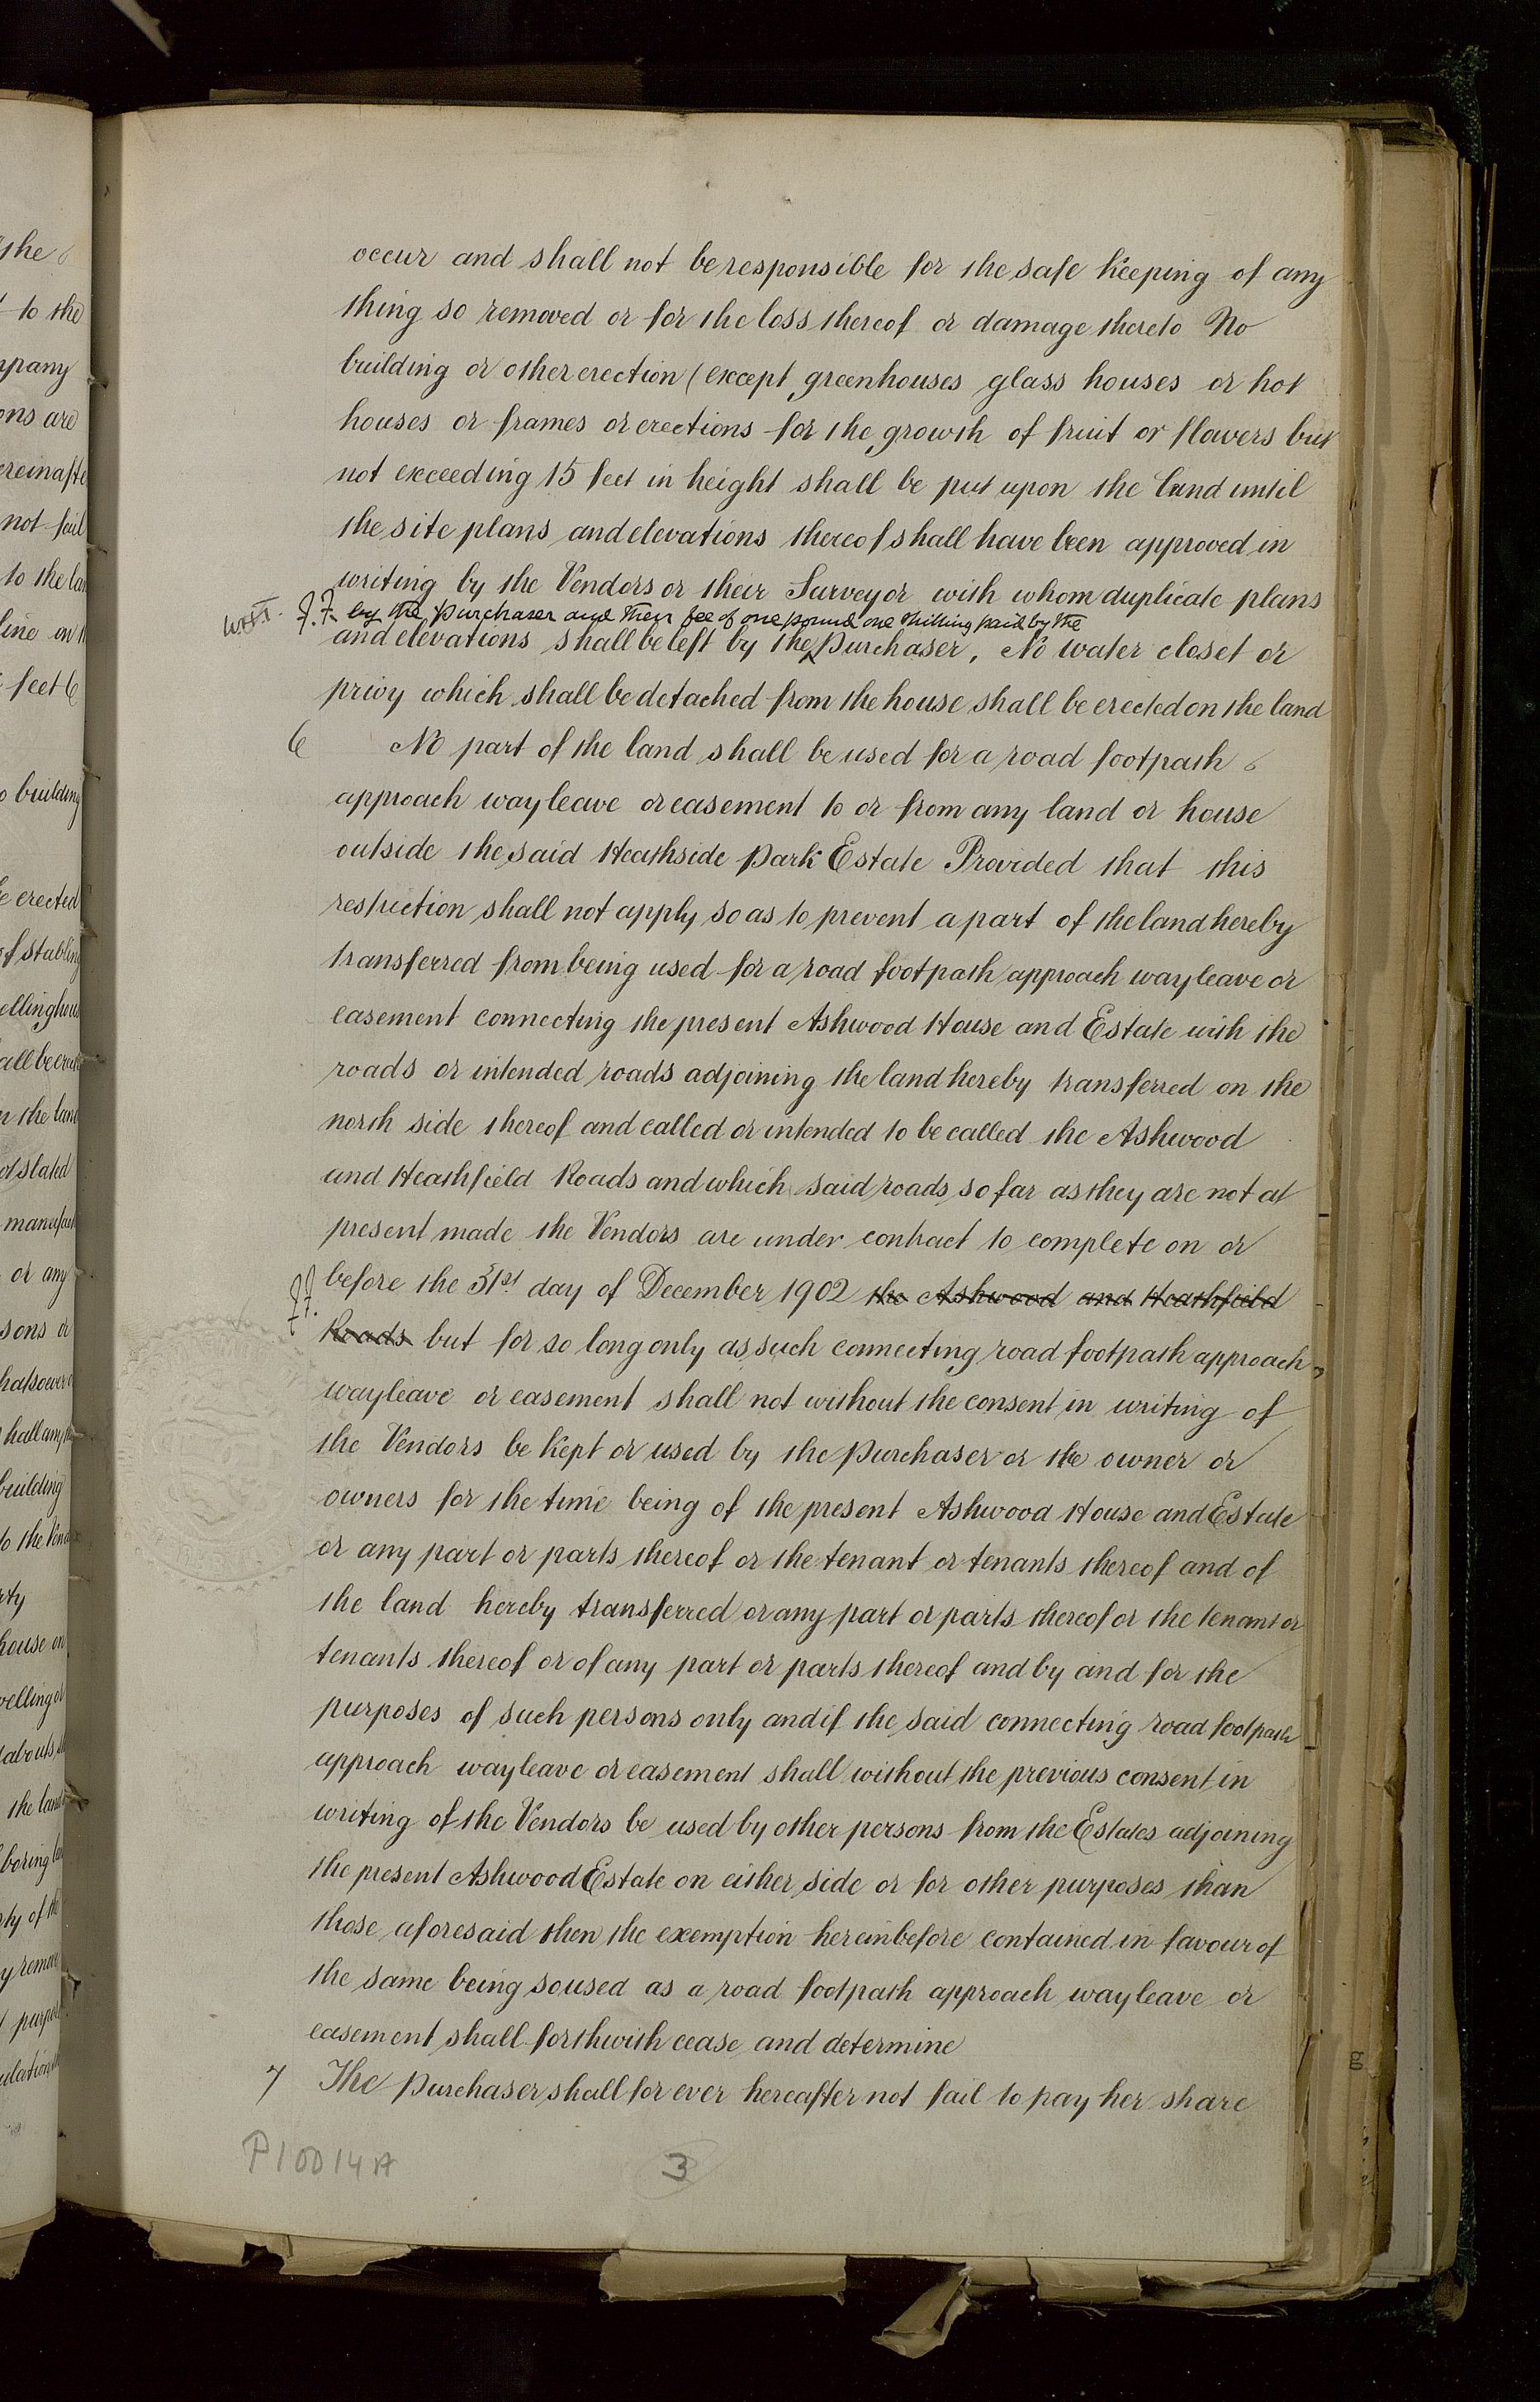 occur and shall not be responsible for the safe keeping of any
thing so removed or for the loss thereof or damage thereto No
building or other erection (except greenhouses glass houses or hot
houses or frames or erections for the growth of fruit or flowers but
not exceeding 15 feet in height shall be put upon the land until
the site plans and elevations thereof shall have been approved in
writing by the Vendors or their Surveyor with whom duplicate plans
by the Purchaser and their fee of one pound one shilling paid by the
and elevations shall be left by the Purchaser. No water closet or
privy which shall be detached from the house shall be erected on the land
6 No part of the land shall be used for a road footpath
approach wayleave or easement to or from any land or house
outside the said Heathside Park Estate Provided that this
restriction shall not apply so as to prevent a part of the land hereby
transferred from being used for a road footpath approach wayleave or
easement connecting the present Ashwood House and Estate with the
roads or intended roads adjoining the land hereby transferred on the
north side thereof and called or intended to be called the Ashwood
and Heathfield Roads and which said roads so far as they are not at
present made the Vendors are under contract to complete on or
before the 31st day of December 1902 the Ashwood and Heathfield
Roads but for so long only as such connecting road footpath approach
wayleave or easement shall not without the consent in writing of
the Vendors be kept or used by the Purchaser or the owner or
owners for the time being of the present Ashwood House and Estate
or any part or parts thereof or the tenant or tenants thereof and of
the land hereby transferred or any part or parts thereof or the tenant or
tenants thereof or of any part or parts thereof and by and for the
purposes of such persons only and if the said connecting road footpath
approach wayleave or easement shall without the previous consent in
writing of the Vendors be used by other persons from the Estates adjoining
the present Ashwood Estate on either side or for other purposes than
those aforesaid then the exemption hereinbefore contained in favour of
the same being so used as a road footpath approach wayleave or
easement shall forthwith cease and determine
7 The Purchaser shall for ever hereafter not fail to pay her share
P10014A
3